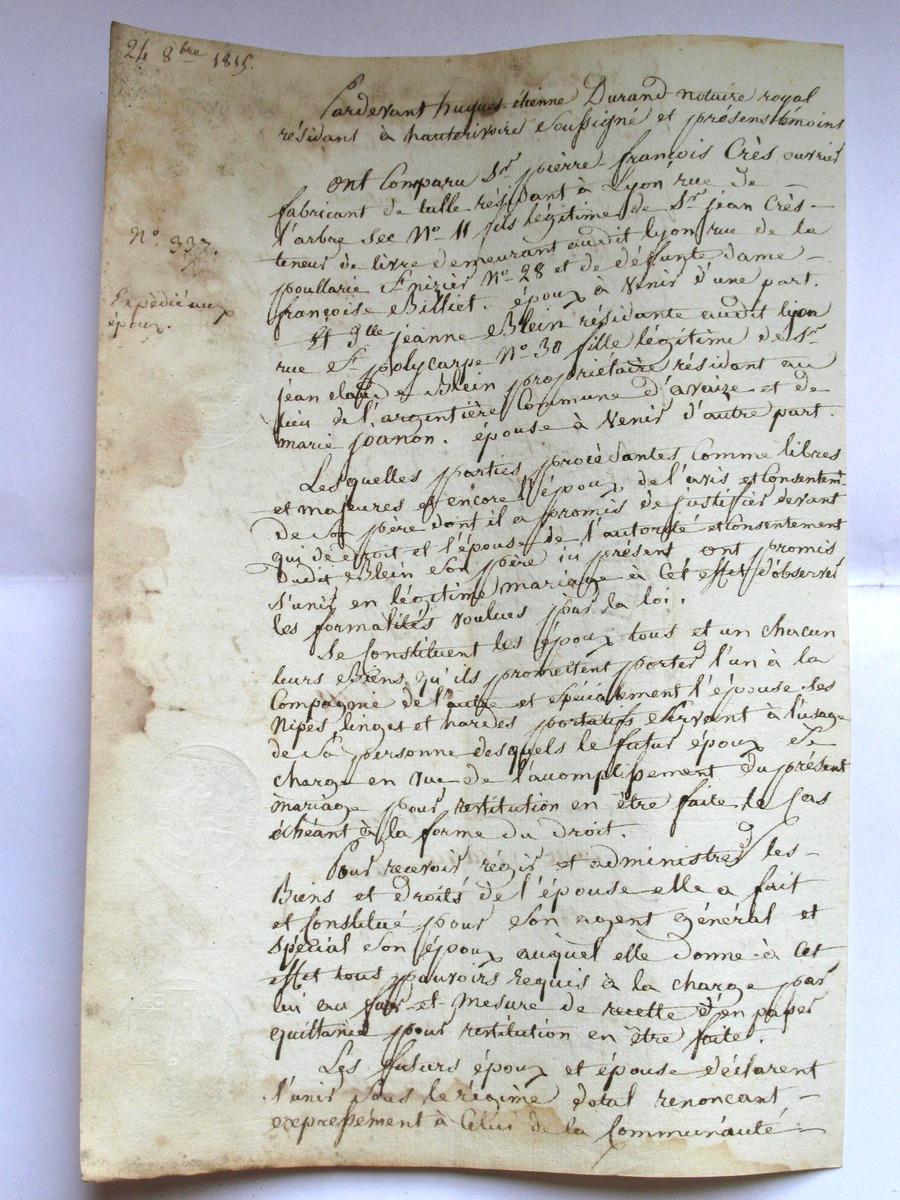 24 8bre 1815.
Pardevant hugues-étienne Durand notaire royal
résidant à hauterivoire Soussigné et présens témoins
ont Comparu Sr pierre françois Crès ouvrier
fabricant de tulle résidant à Lyon rue de
l'arbre sec No 11 fils légitime de Sr jean Crès
teneur de livre demeurant audit lyon rue de la
poullarie St nizier No 28 et de défunte dame
françoise Billiet. époux à Venir d'une part.
No 337.
Expédié aux
époux.
Et Dlle jeanne Blein résidante audit lyon
rue St polycarpe No 30 fille légitime de Sr
jean claude Blein propriétaire résidant au
lieu de l'argentière Commune d'aveize et de
marie joanon. épouse à Venir d'autre part.
Lesquelles parties procédantes Comme libres
et majeures et encore l'époux de l'avis et Consentemt
de son père dont il a promis de justifier devant
qui de droit et l'épouse de l'autorité et Consentement
dudit Blein Son père ici présent ont promis
S'unir en légitime mariage à Cet effet d'observer
les formalités voulues par la loi.
Se Constituent les époux tous et un chacun
leurs Biens qu'ils promettent porter l'un à la
Compagnie de l'autre et spécialement l'épouse ses
Nipes linges et hardes portatifs Servant à l'usage
de Sa personne desquels le futur époux Se
charge en vue de l'accomplissement du présent
mariage pour restitution en être faite le Cas
échéant à la forme du droit.
Pour recevoir régir et administrer les
Biens et droits de l'épouse elle a fait
et Constitué pour Son agent général et
Spécial Son époux auquel elle donne à Cet
effet tous pouvoirs requis à la charge par
lui au fur et mesure de recette d'en passer
quittance pour restitution en être faite.
Les futurs époux et épouse déclarent
S'unir Sous le régime dotal renonçant
expressément à Celui de la Communauté